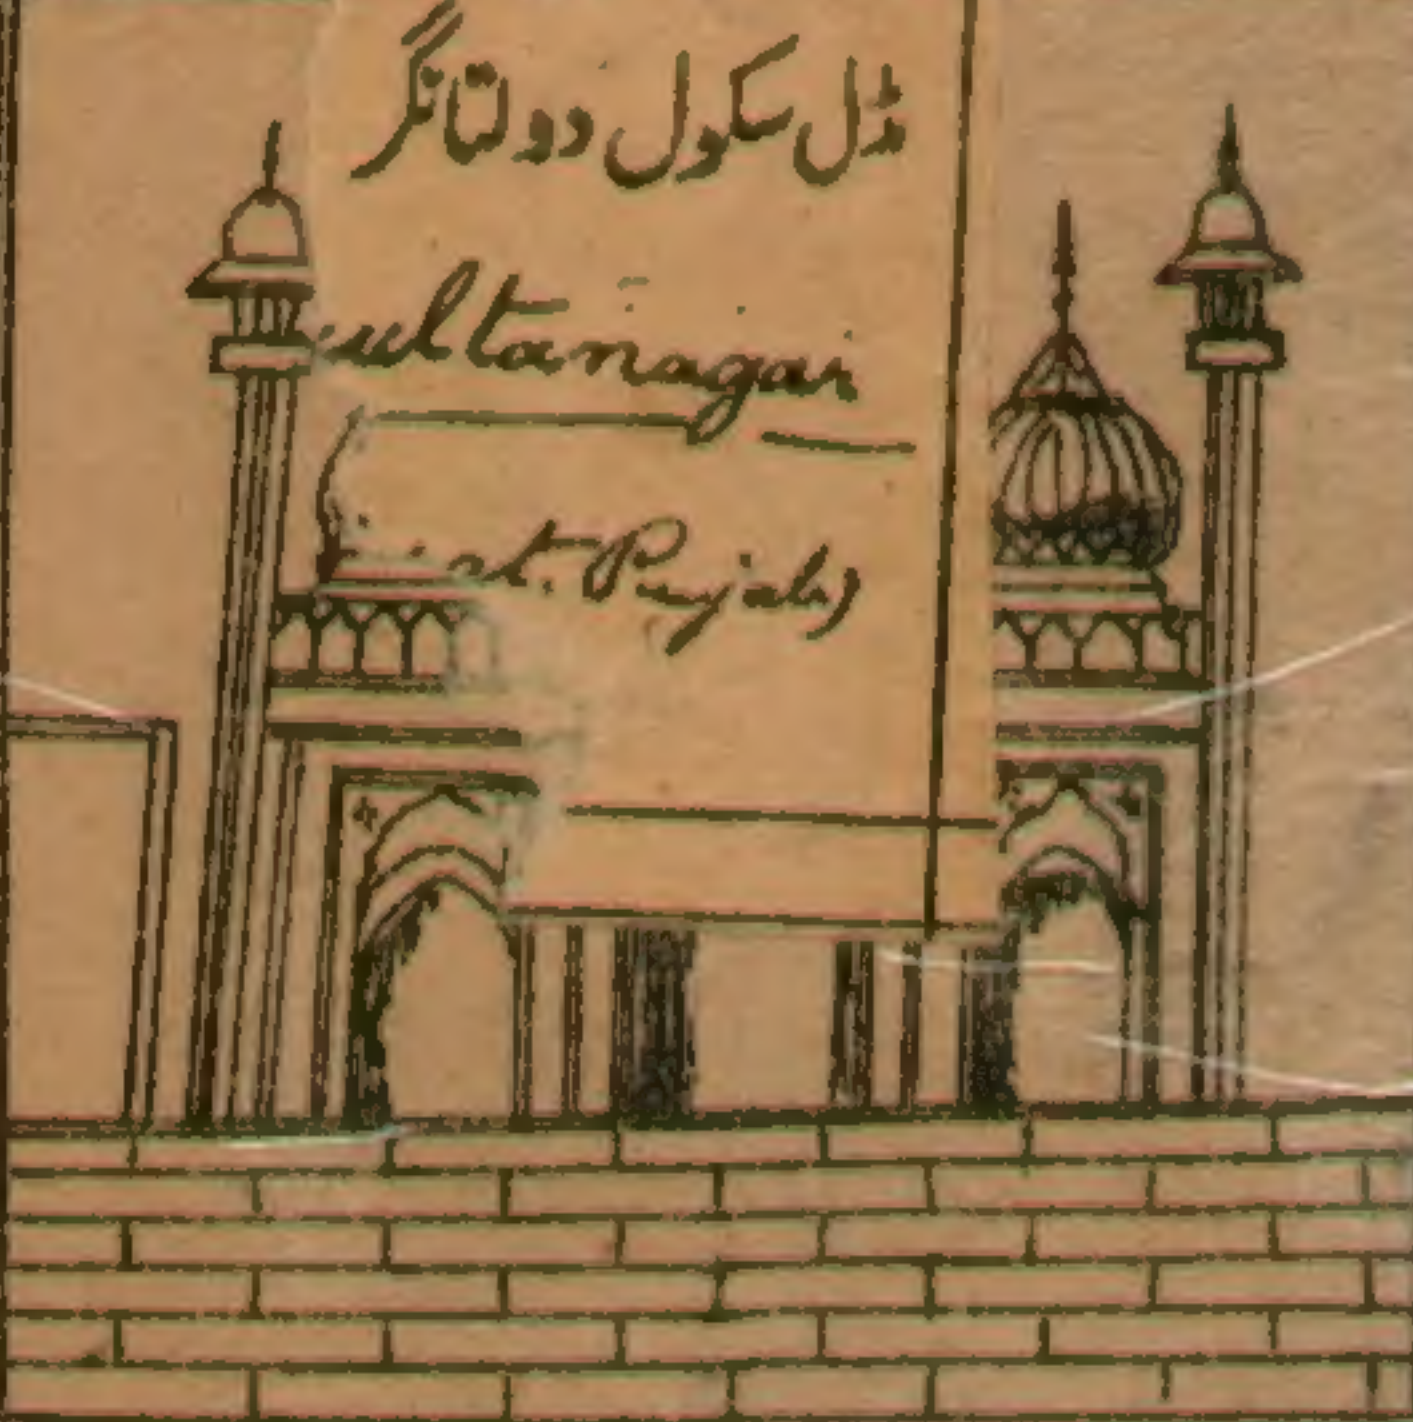 ڈل سکول دولتانگر
ultanagar
ist. Punjab)